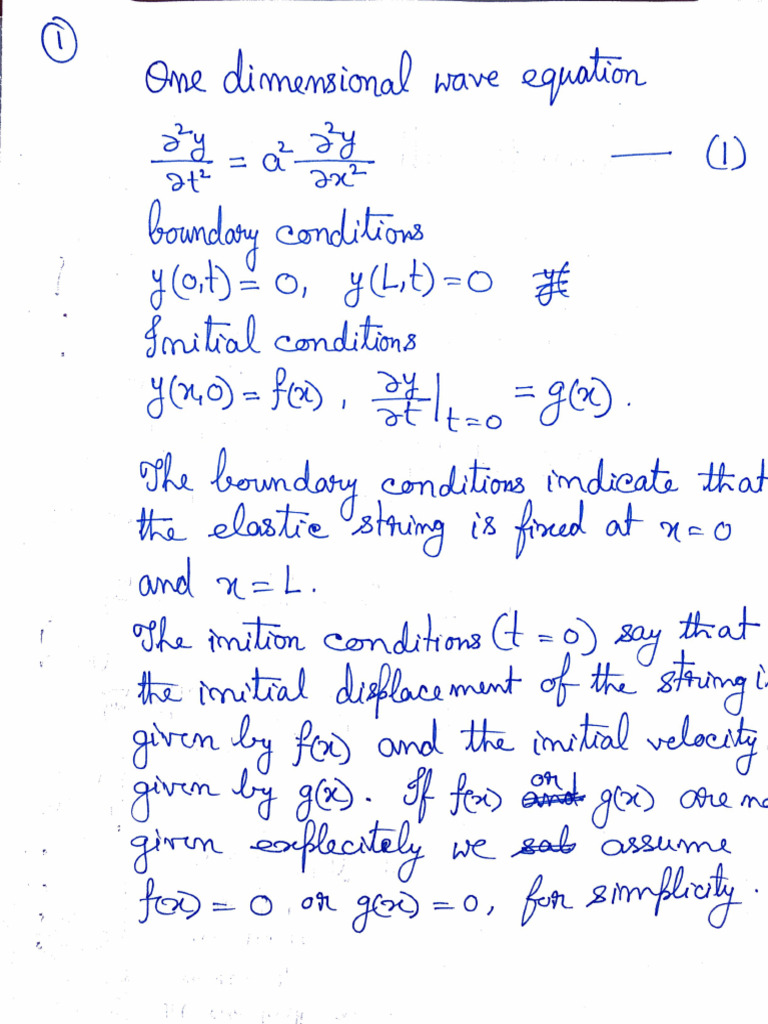 ①
One dimensional wave equation
∂²y/∂t² = a² ∂²y/∂x² — (1)
boundary conditions
y(0,t) = 0, y(L,t) = 0
Initial conditions
y(x,0) = f(x), ∂y/∂t|t=0 = g(x).
The boundary conditions indicate that
the elastic string is fixed at x = 0
and x = L.
The inition conditions (t = 0) say that
the initial displacement of the string i
given by f(x) and the initial velocity
given by g(x). If f(x) or g(x) are no
given explecitely we assume
f(x) = 0 or g(x) = 0, for simplicity.